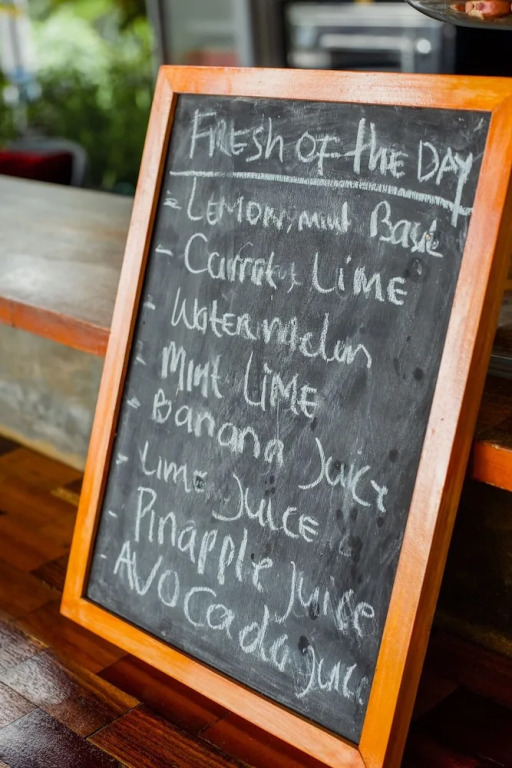 FRESH OF THE DAY
- LEMON, mint BASIL
- Carrot, LIME
- Watermelon
- Mint LIME
- Banana Juice
- Lime Juice
- Pinapple Juice
- AVOCado Juice